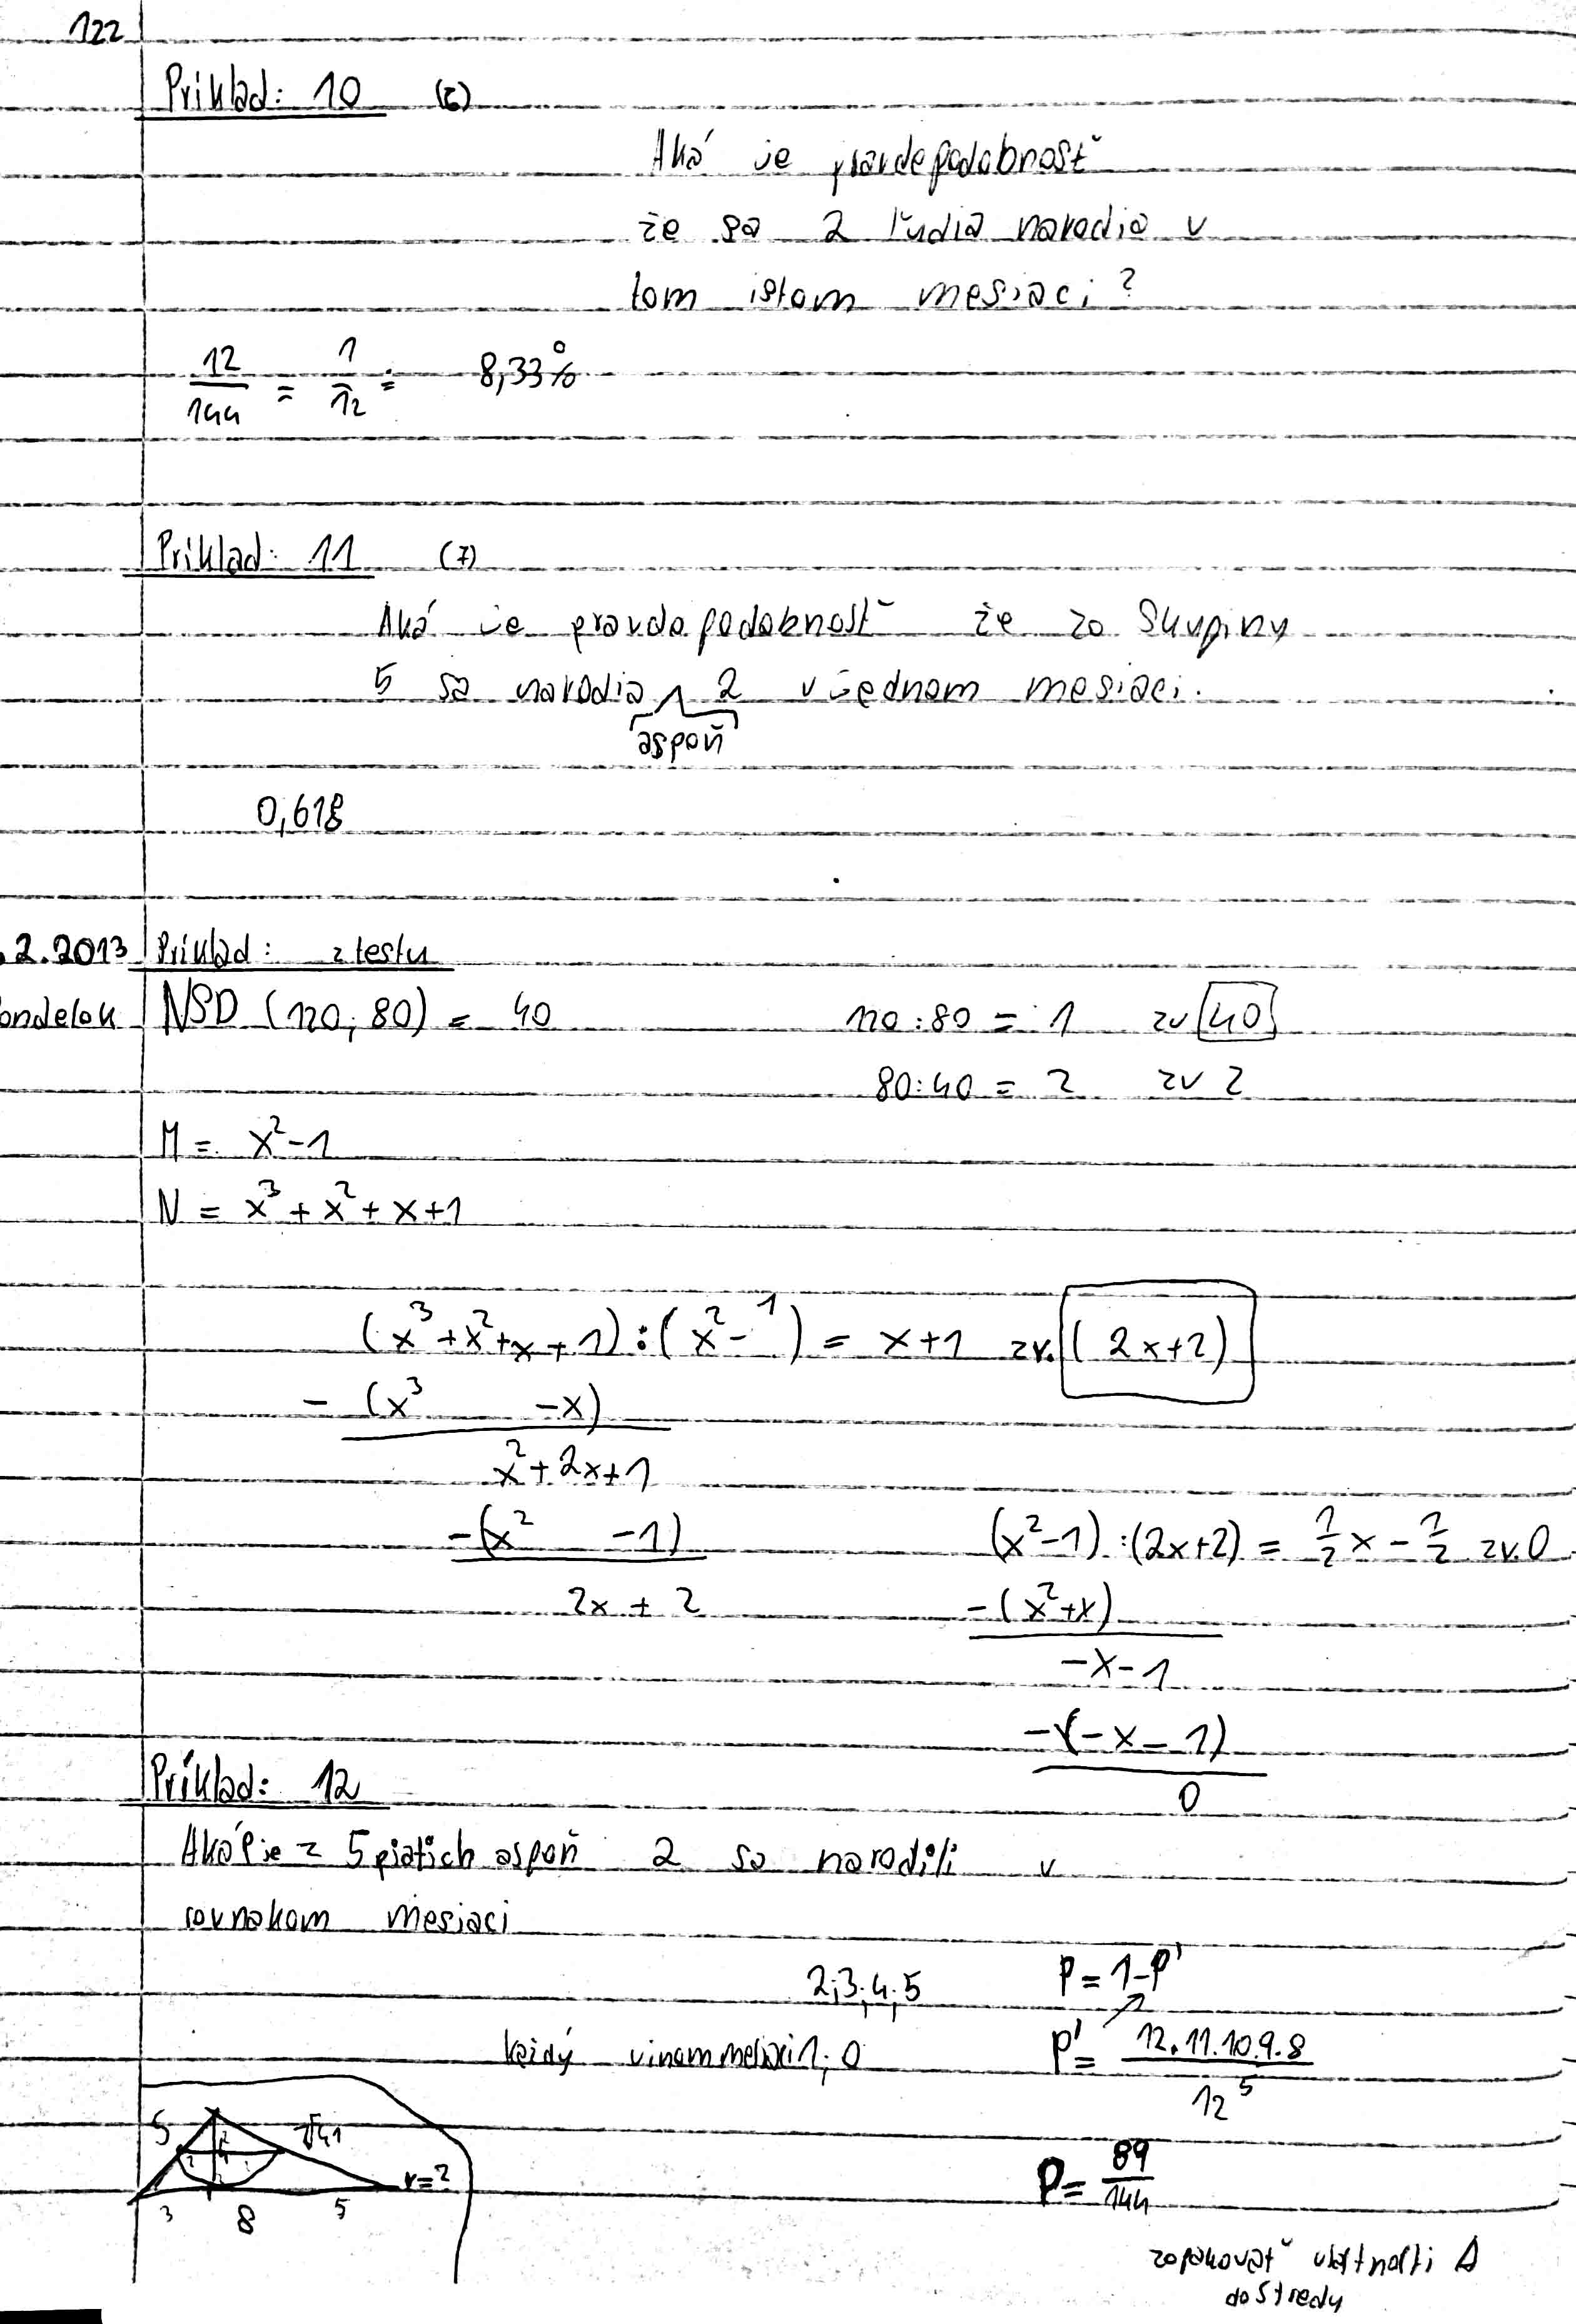 122
Priklad: 10 (6)
Aká je pravdepodobnosť
že sa 2 ľudia narodia v
tom istom mesiaci?
12/144 = 1/12 = 8,33%
Priklad: 11 (7)
Aká je pravdepodobnosť že zo skupiny
5 sa narodia 2 v jednom mesiaci.
aspoň
0,618
.2.2013 Priklad: z testu
ondelok NSD (120; 80) = 40 120:80 = 1 zv 40
80:40 = 2 zv 2
M = x²-1
N = x³+x²+x+1
(x³+x²+x+1):(x²-1) = x+1 zv. (2x+2)
-(x³ -x)
x²+2x+1
-(x² -1) (x²-1):(2x+2) = 1/2x - 1/2 zv.0
2x + 2 -(x²+x)
-x-1
-(-x-1)
0
Príklad: 12
Aká P je z 5 piatich aspoň 2 sa narodili v
rovnakom mesiaci
2;3;4;5 P = 1-P'
každý v inom mesiaci 1; 0 P' = 12.11.10.9.8/12⁵
5 √41
r=?
3 8 5
P = 89/144
zopakovať vlastnosti Δ
do stredy